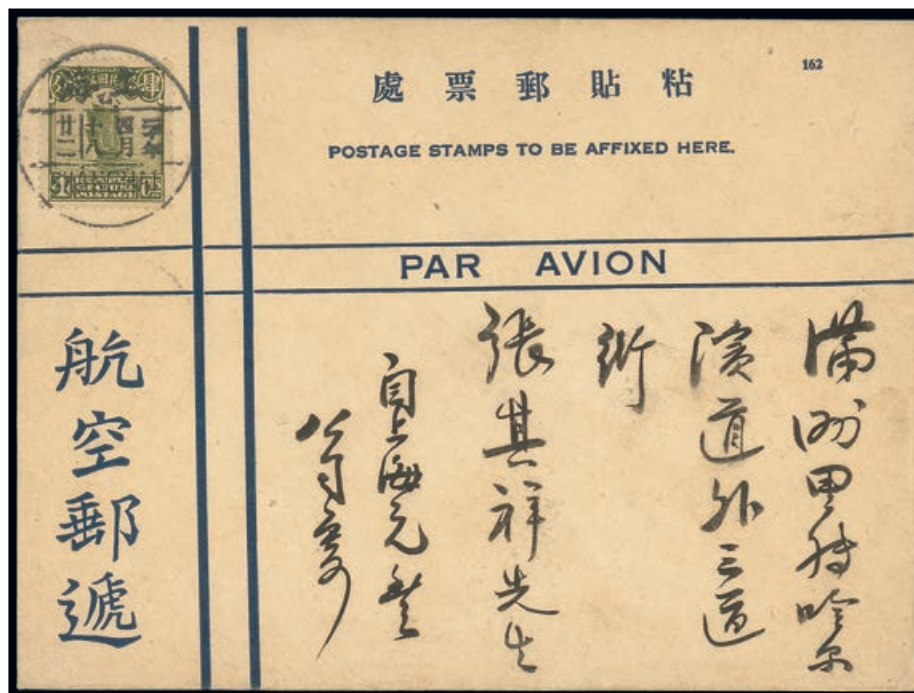 162
處票郵貼粘
POSTAGE STAMPS TO BE AFFIXED HERE.
PAR AVION
航空郵遞
滿洲里轉哈尔
濱道外三道
街
張其祥先生
自上海元
公司
廿二
十八
四月
年